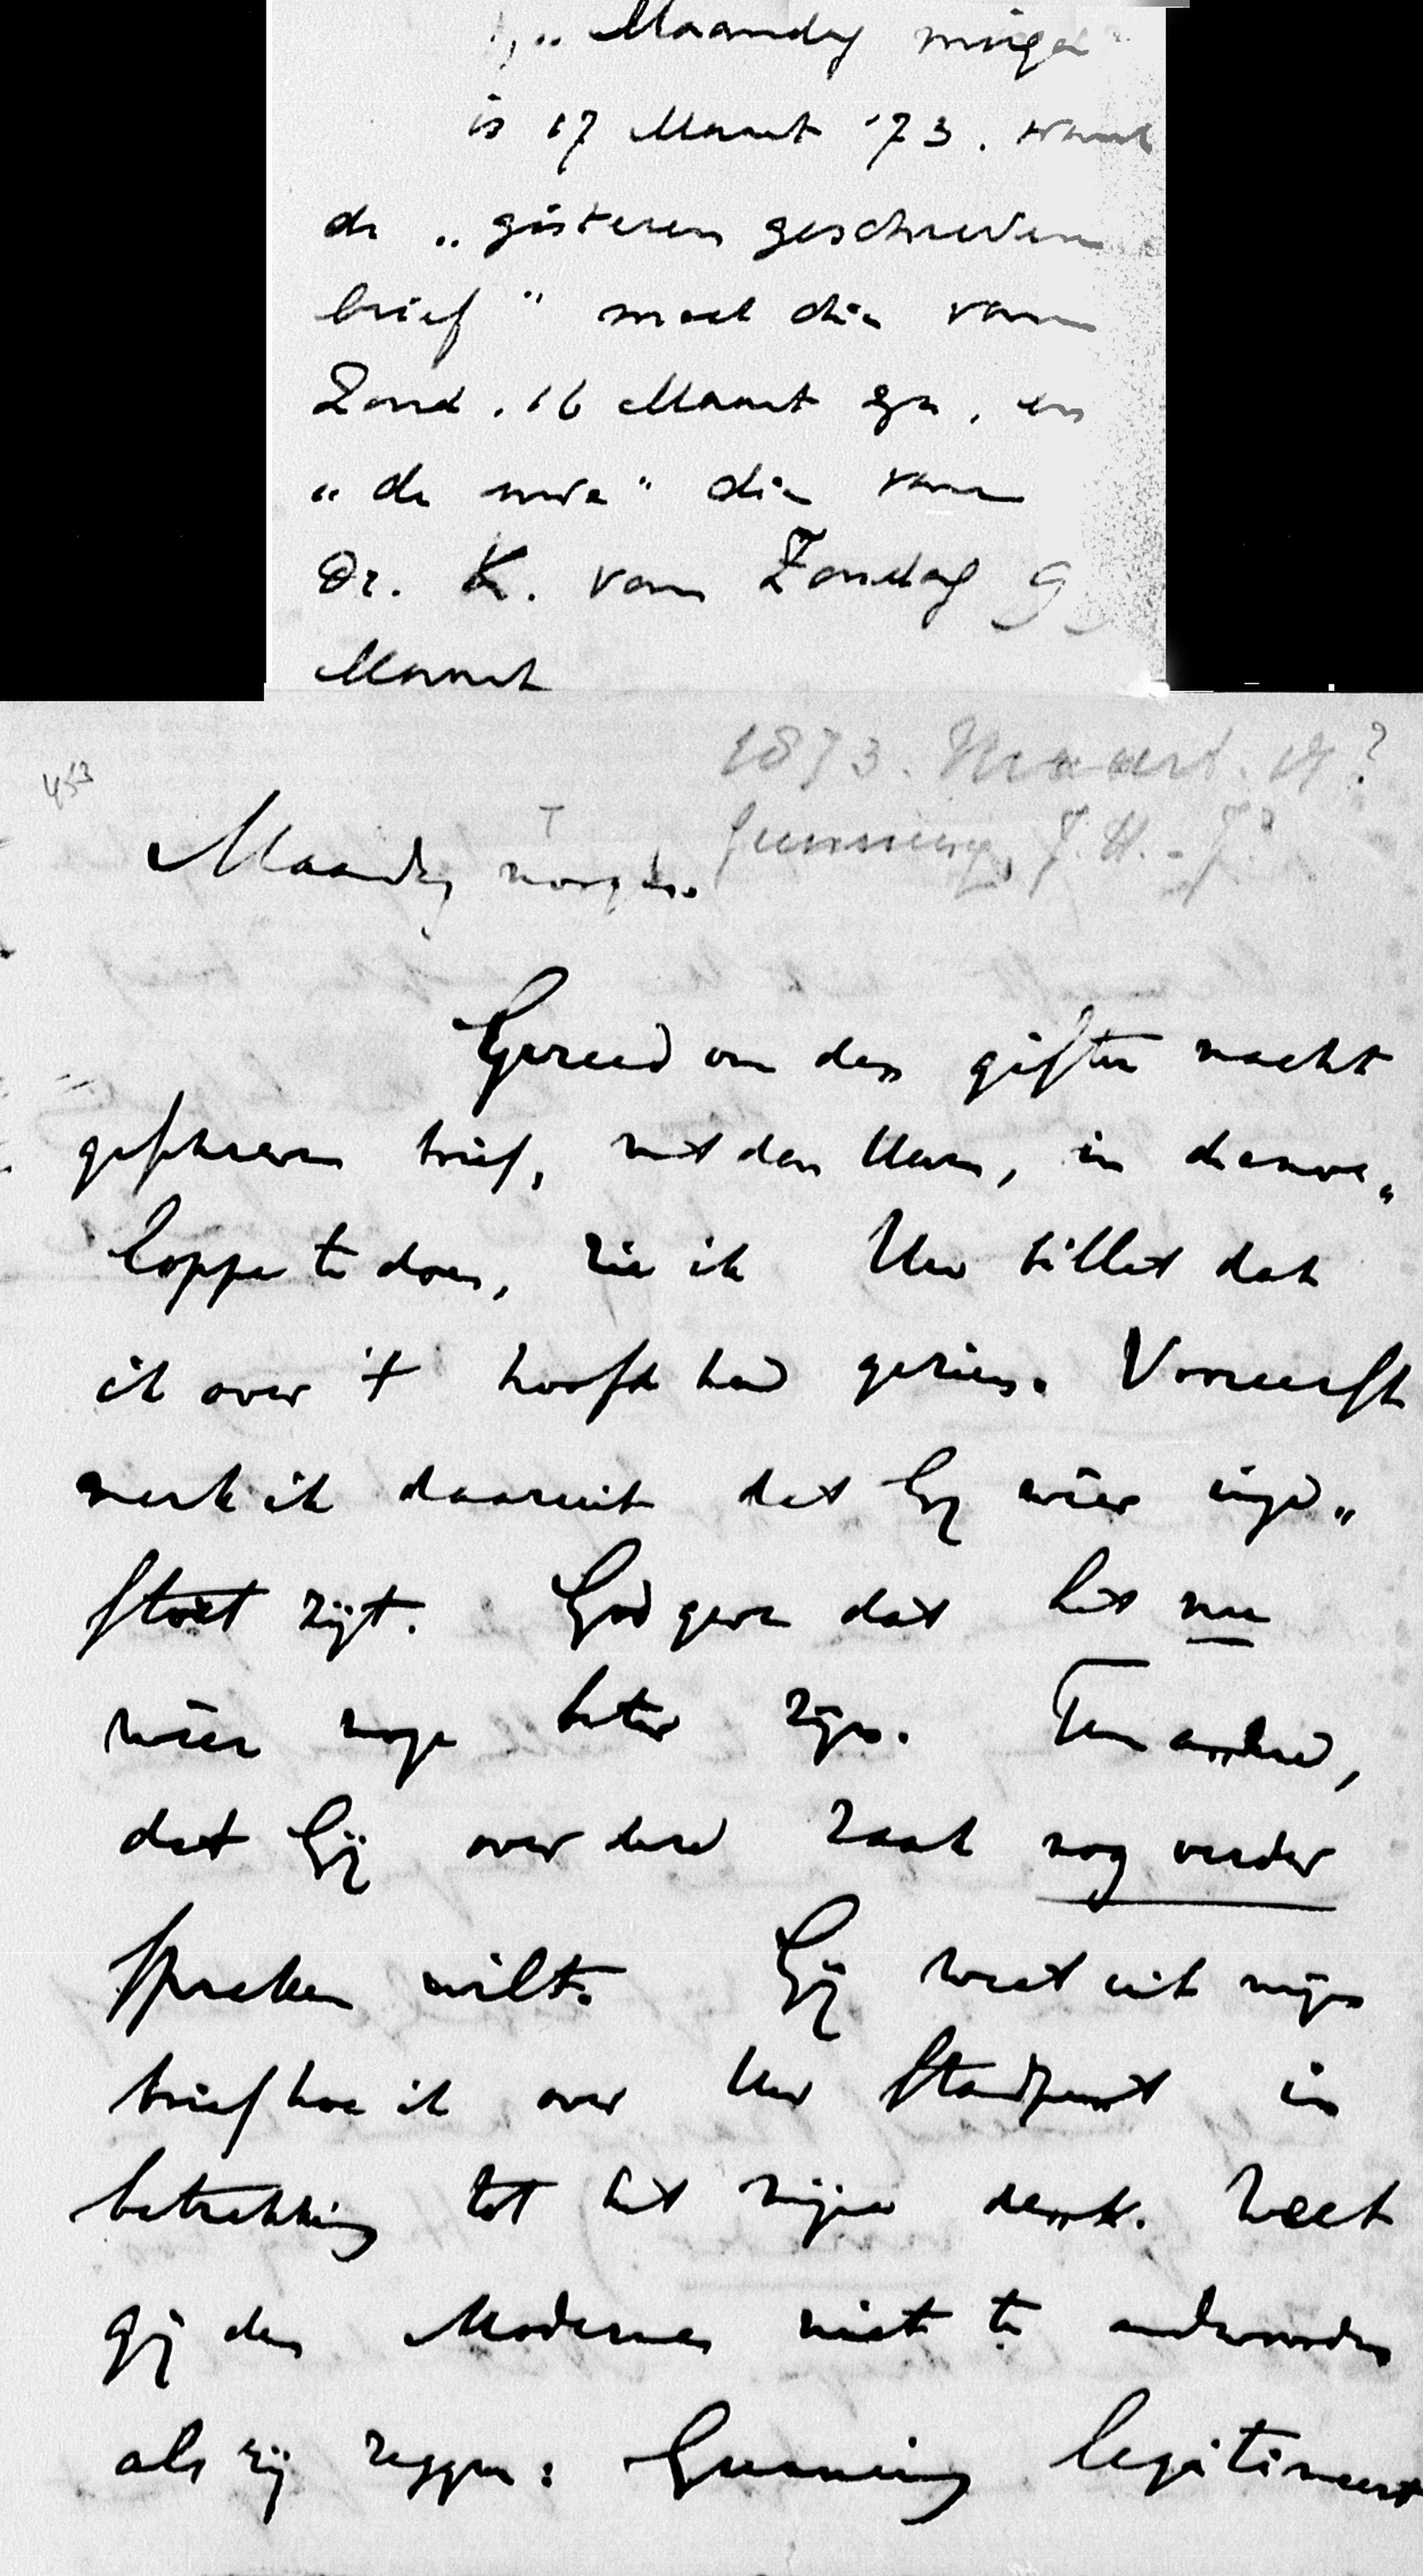 „Maandag morgen"
is 17 Maart '73. want
de „gisteren geschreven
brief" moet die van
Zond. 16 Maart zyn, en
„de uwe" die van
Dr. K. van Zondag 9
Maart
1873. Maart. 17?
453
Gunning, J.H. - J?
Maandag morgen.
Gereed om den gister nacht
geschreven brief, met den Uwen, in de enve„
loppe te doen, zie ik Uw billet dat
ik over 't hoofd had gezien. Vooreerst
merk ik daaruit dat Gij wéér inge„
stort zijt. God geve dat het nu
wéér moge beter zijn. Ten andere,
dat Gij over deze zaak nog verder
spreken wilt. Gij weet uit mijn
brief hoe ik over Uw standpunt in
betrekking tot het mijne denk. Weet
gij den Modernen niet te andwoorden
als zij zeggen: Gunning legitimeert